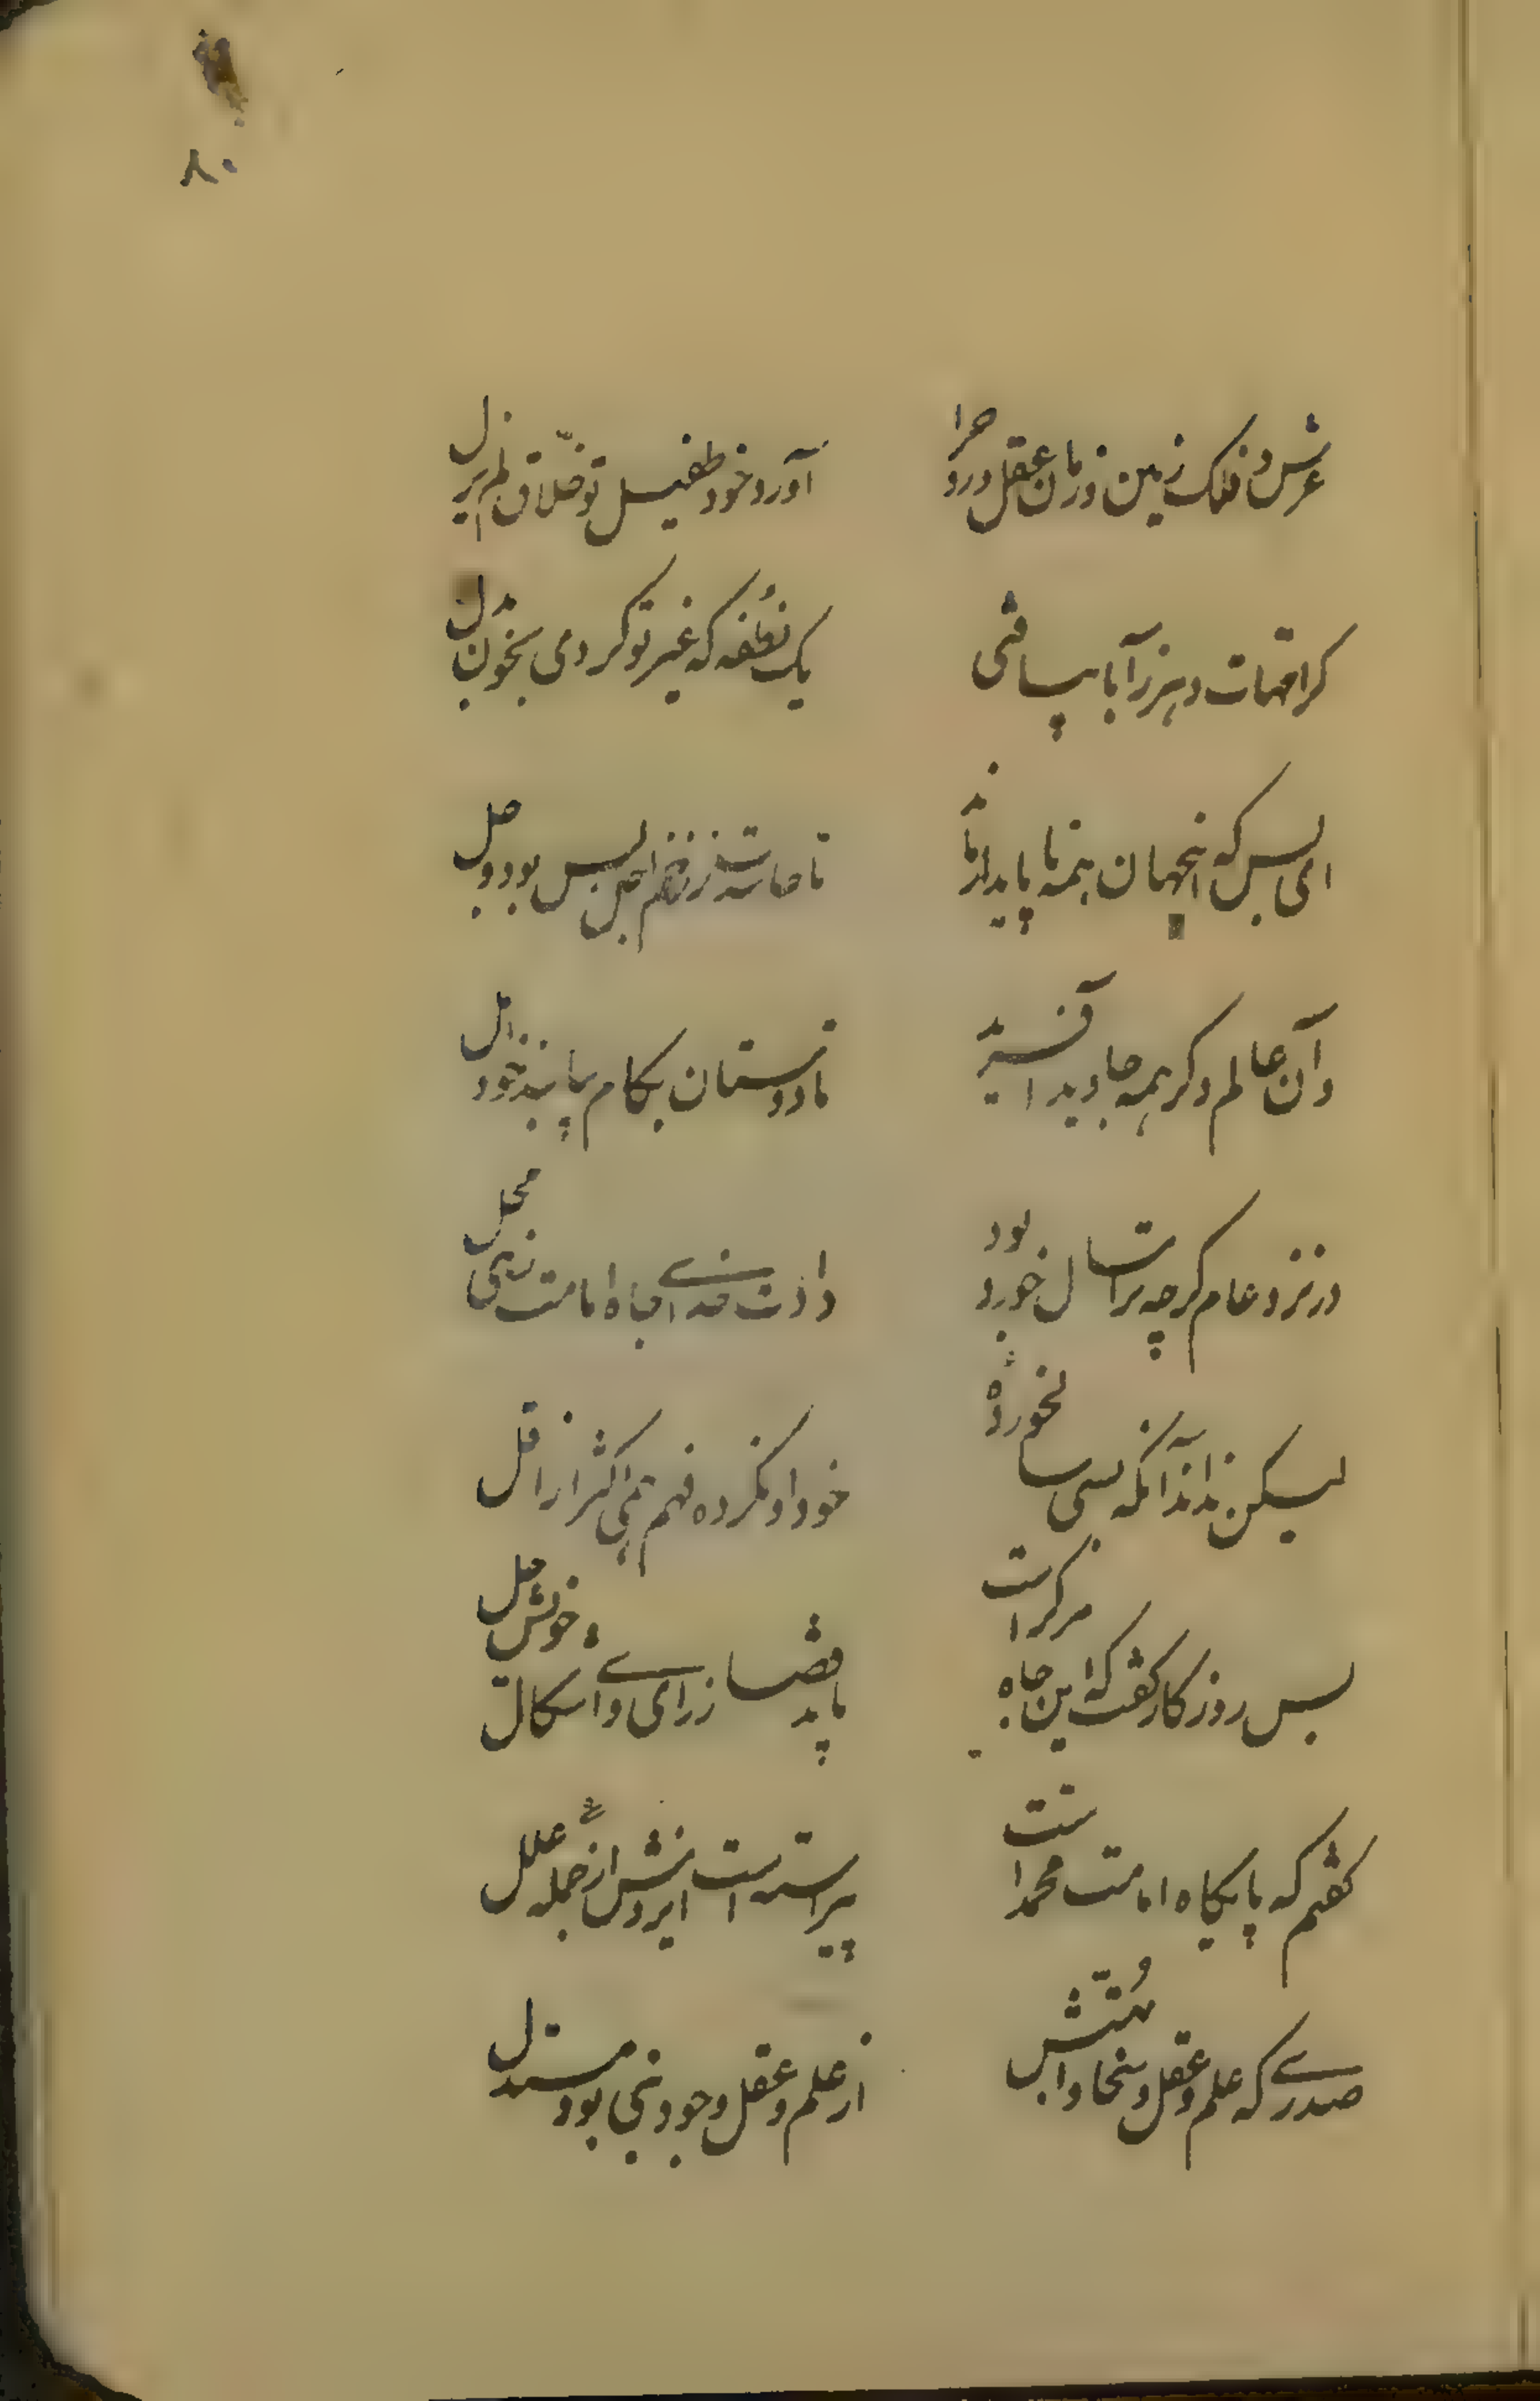 ۸۰
عرش و فلک زمین و زمان عقل و روح را
آورد خود طفیل تو خلاق لم یزل
کر امهات دهر ز آبا بیافتی
یک نطفه که غیر تو کردی بخون بدل
ای بس که اینجهان همه ناپایدار ماند
تا حاسدت ز زخم اجل بس بود وجل
وآن عالم دگر همه جاوید آفرید
تا دوستان بکام بیابند خود امل
در نزد عام کرچه ترا سال خورد بود
دادت خدای جاه امامت زهی محل
لیکن نداند آنکه بسی سالخورده شد
خود او نکرده فهم همی اکثر از اقل
بس روزکار کفت که این جاه مر کراست
باید قضا ز رای و اشکال خویش حل
کفتم که پایکاه امامت محمد است
پیراسته است ایزدش از جمله علل
صدری که علم و عقل و سخا و ابهتش
از علم و عقل وجود نبی بود مبتذل